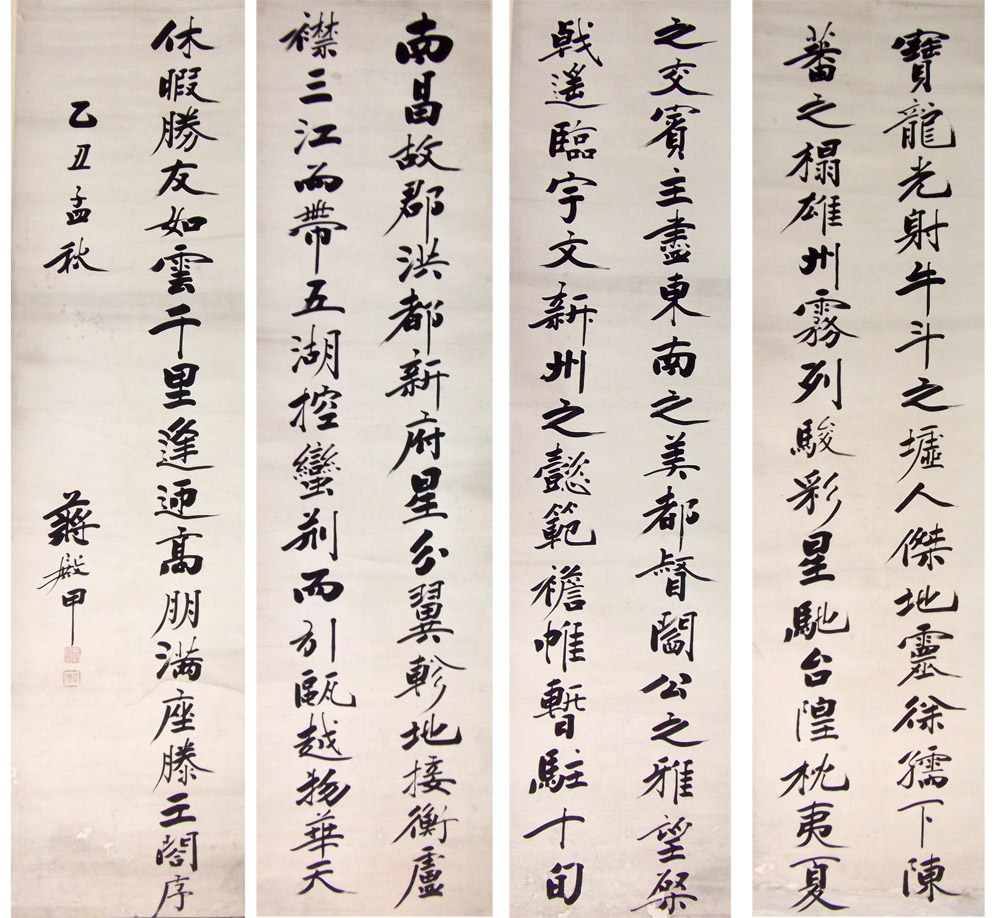 南昌故郡洪都新府星分翼軫地接衡廬
襟三江而帶五湖控蠻荊而引甌越物華天
寶龍光射牛斗之墟人傑地靈徐孺下陳
蕃之榻雄州霧列駿彩星馳台隍枕夷夏
之交賓主盡東南之美都督閻公之雅望棨
戟遙臨宇文新州之懿範襜帷暫駐十旬
休暇勝友如雲千里逢迎高朋滿座滕王閣序
乙丑孟秋 蔣殿甲